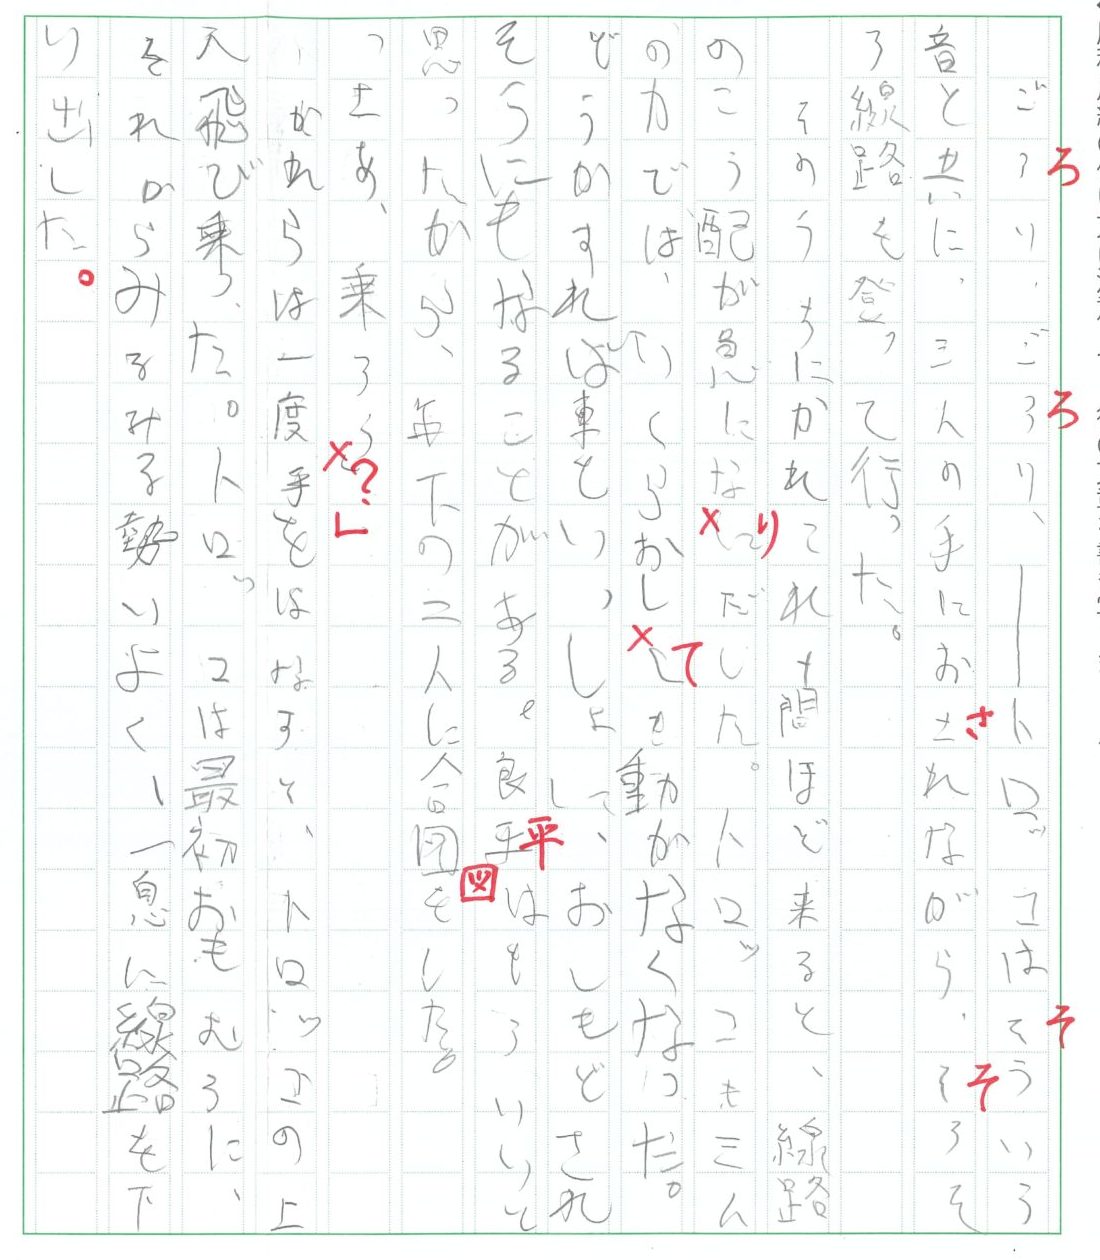 ごろり、ごろり、――トロッコはそういう
音と共に、三人の手におされながら、そろそ
ろ線路を登って行った。
そのうちにかれこれ十間ほど来ると、線路
のこう配が急になりだした。トロッコも三人
の力では、いくらおしても動かなくなった。
どうかすれば車といっしょに、おしもどされ
そうにもなることがある。良平はもういいと
思ったから、年下の二人に合図をした。
「さあ、乗ろう」
かれらは一度手をはなすと、トロッコの上
へ飛び乗った。トロッコは最初おもむろに、
それからみるみる勢いよく、一息に線路を下
り出した。
ろ
ろ
そ
さ
そ
り
て
平
図
?
」
。